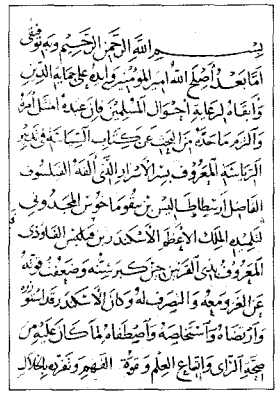 بسم الله الرحمن الرحيم وبه توفيقي
اما بعد اصلح الله امير المومنين وايده على حماية الدين
وابقاه لرعاية احوال المسلمين فان عبده امتثل امره
والتزم ما حده من البحث عن كتاب السياسة في تدبير
الرياسة المعروف بسر الاسرار الذي الفه الفيلسوف
الفاضل ارسطاطاليس بن نيقوماخوس المجدوني
لتلميذه الملك الاعظم الاسكندر بن فيلبس القاوذي
المعروف بذي القرنين حين كبر سنه وضعفت قوته
عن الغزو معه والتصرف له وكان الاسكندر قد استوزره
وارتضاه واستخلصه واصطفاه لما كان عليه من
صحة الراي واتساع العلم وقوة الفهم وتفرده بالخلال